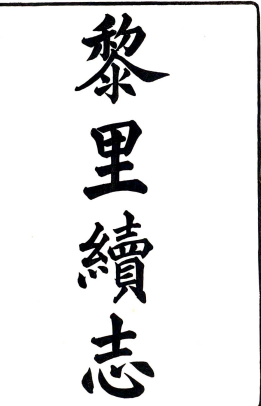 黎里續志